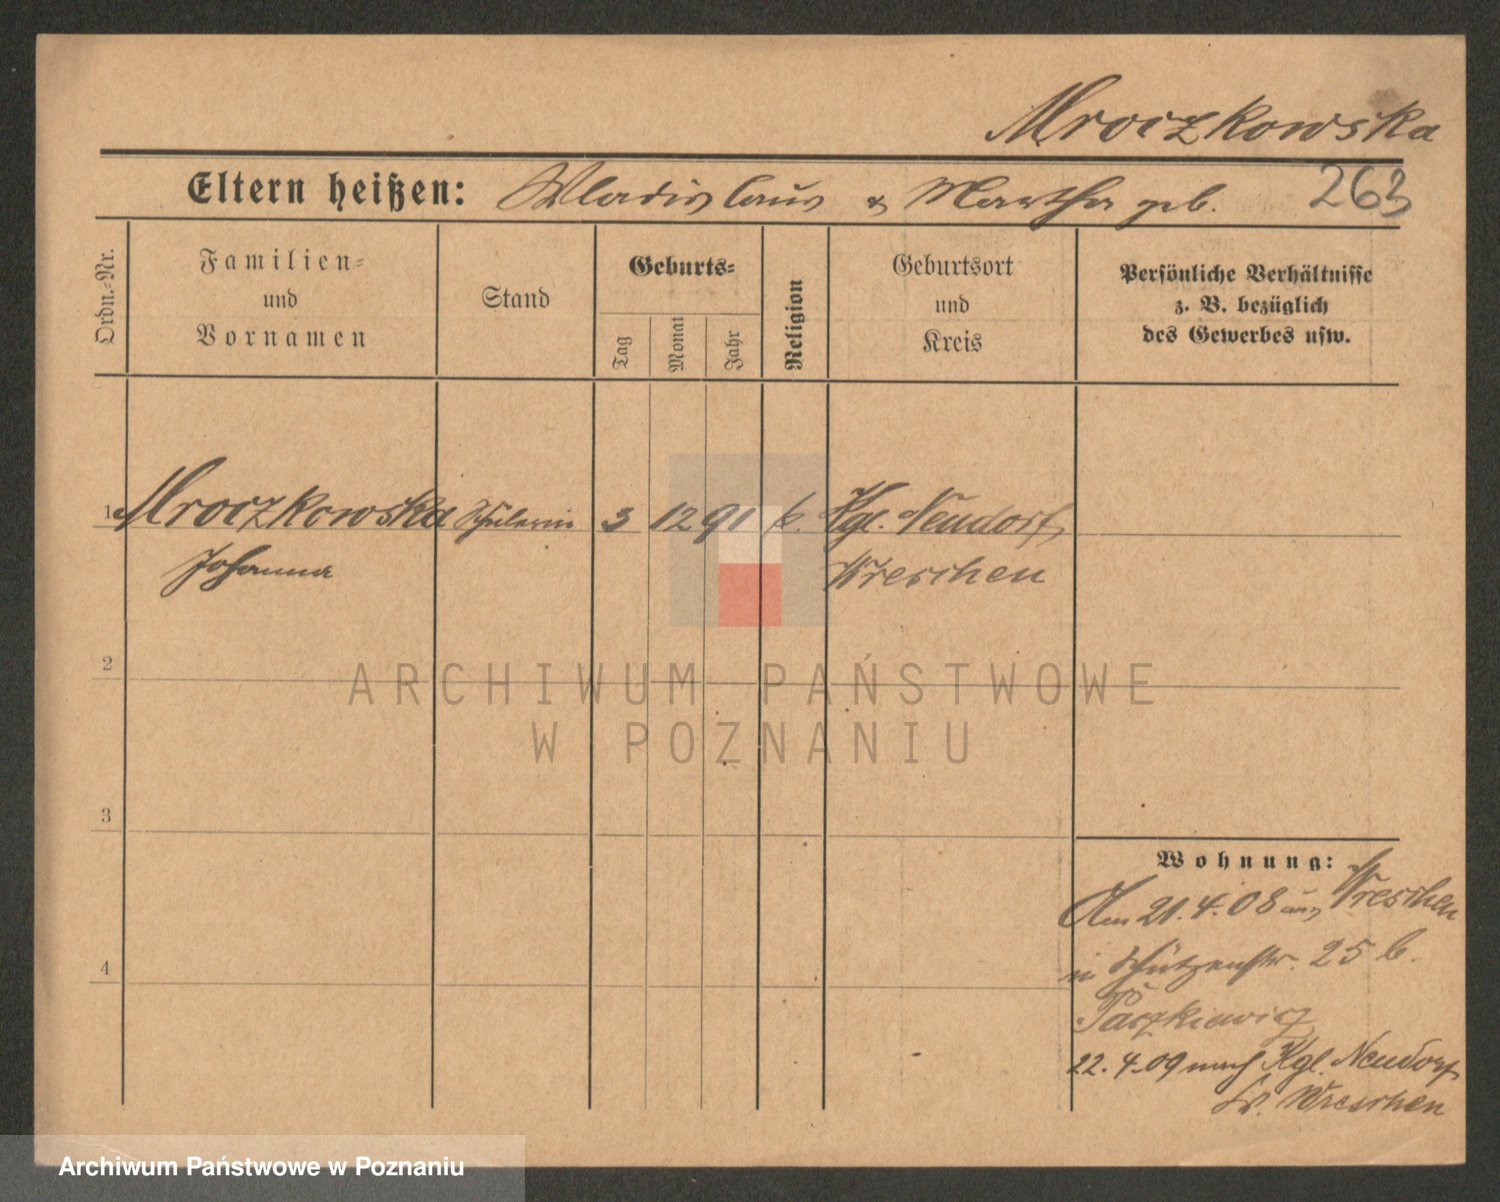 Mroczkowska
Eltern heißen: Wladislaus & Martha geb. 263
Ordn.-Nr.
Familien-
und
Vornamen
Stand
Geburts-
Tag
Monat
Jahr
Religion
Geburtsort
und
Kreis
Persönliche Verhältnisse
z. B. bezüglich
des Gewerbes usw.
1 Mroczkowska Schülerin 3 12 91 k. Kgl. Neudorf
Johanna Wreschen
2
ARCHIWUM PAŃSTWOWE
W POZNANIU
3
Wohnung:
Am 21.4.08 aus Wreschen
in Schützenstr. 25 b.
Paczkiewicz
4
22.4.09 nach Kgl. Neudorf
Kr. Wreschen
Archiwum Państwowe w Poznaniu